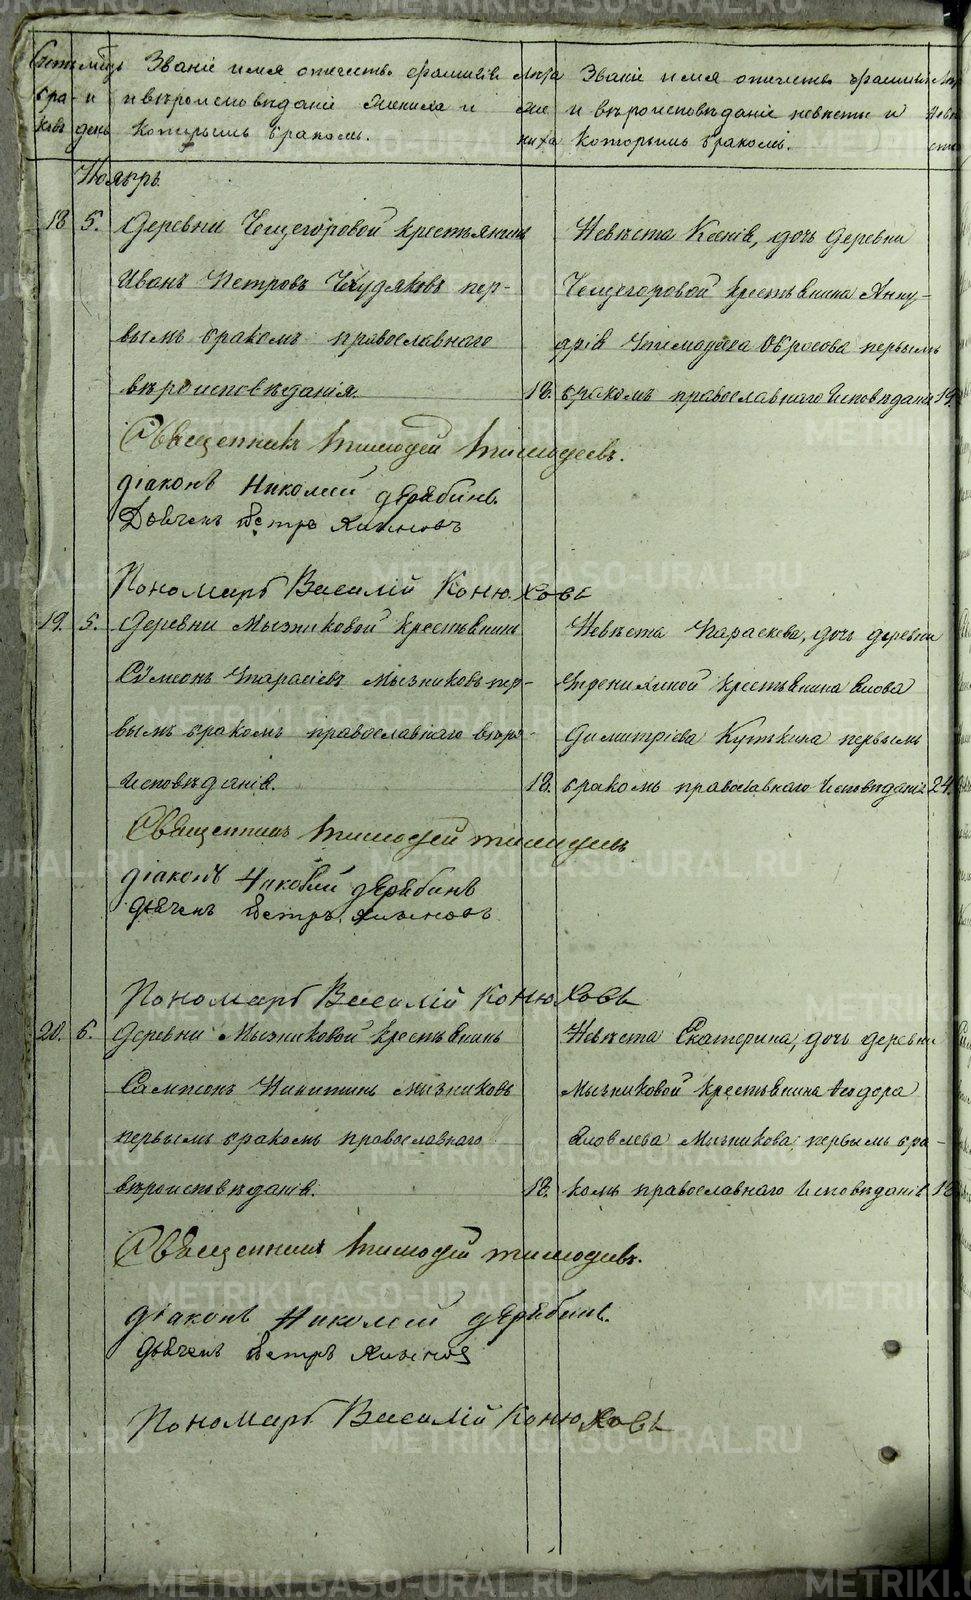 Счетъ бра- ковъ
мѣсяць и день
Званіе имя отечество фамилія
и вѣроисповѣданіе жениха и
которымъ бракомъ.
Лѣта же ниха
Званіе имя отечество фамилія
и вѣроисповѣданіе невѣсты и
которымъ бракомъ.
Ноябрь.
18 5. Деревни Чещегоровой крестьянинъ
Иванъ Петровъ Чхудяковъ пер-
вымъ бракомъ православнаго
вѣроисповѣданія. 18.
Невѣста Ксенія, дочь деревни
Чещегоровой крестьянина Анну-
арія Тимофеева первымъ
бракомъ православнаго исповѣданія 19.
Священникъ Тимофей Тимофеевъ.
діаконъ Николай дерябинъ.
Дьячекъ Петръ
Пономарь Василій Конюховъ
19. 5. Деревни Мызниковой крестьянинъ
Сумеонъ Тарасіевъ Мызниковъ пер-
вымъ бракомъ православнаго вѣро-
исповѣданія. 18.
Невѣста Параскева, дочь деревни
крестьянина
Димитріева Куткина первымъ
бракомъ православнаго исповѣданія 24.
Священникъ Тимофей Тимофеевъ
діаконъ Николай дерябинъ
дьячекъ Петръ
Пономарь Василій Конюховъ
20. 6. Деревни Мызниковой крестьянинъ
Сампсонъ Никитинъ Мызниковъ
первымъ бракомъ православнаго
вѣроисповѣданія. 18.
Невѣста Екатерина, дочь деревни
Мызниковой крестьянина Ѳеодора
Яковлева Мызникова, первымъ бра-
комъ православнаго исповѣданія 18
Священникъ Тимофей Тимофеевъ.
діаконъ Николай дерябинъ.
дьячекъ Петръ
Пономарь Василій Конюховъ
METRIKI.GASO-URAL.RU